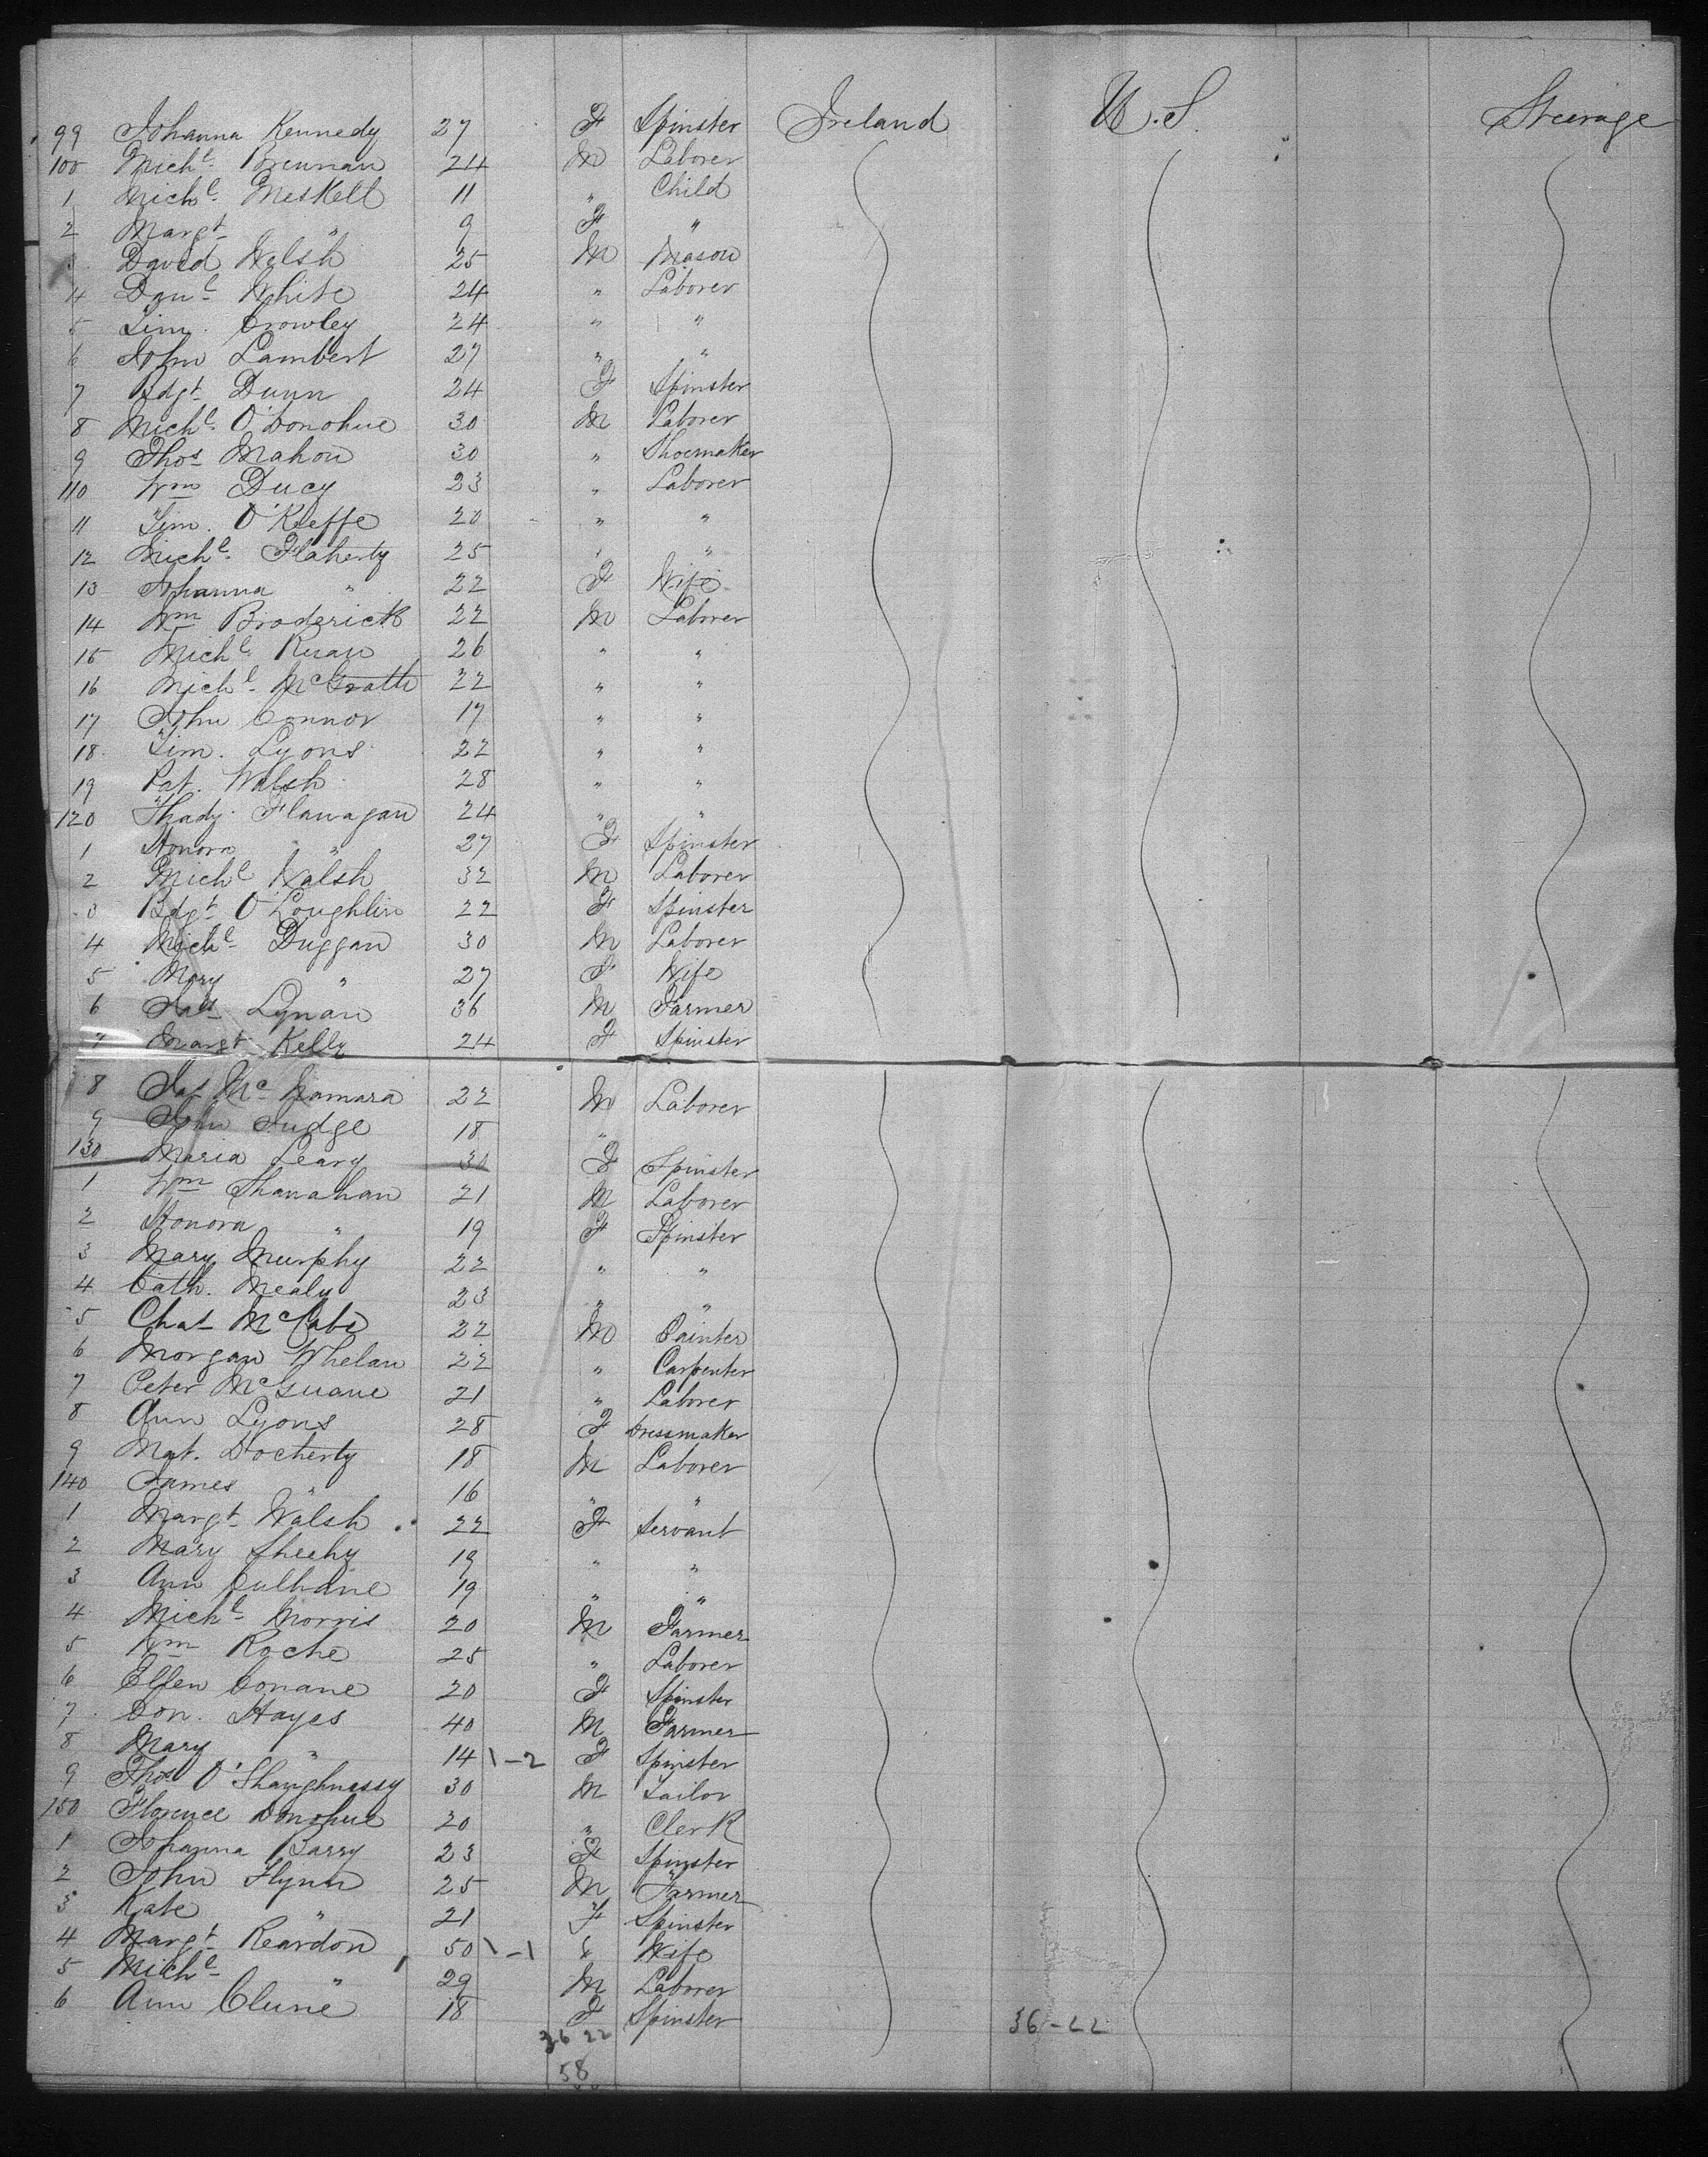 99 Johanna Kennedy 27 F Spinster Ireland U.S. Steerage
100 Michl Brennan 24 M Laborer
1 Michl Meskell 11 " Child
2 Margt " 9 F "
3 David Walsh 25 M Mason
4 Danl White 24 " Laborer
5 Tim. Crowley 24 " "
6 John Lambert 27 " "
7 Bdgt Dunn 24 F Spinster
8 Michl O'Donohue 30 M Laborer
9 Thos Mahon 30 " Shoemaker
110 Wm Ducy 23 " Laborer
11 Tim. O'Keeffe 20 " "
12 Michl Flaherty 25 " "
13 Johanna " 22 F Wife
14 Wm Broderick 22 M Laborer
15 Michl Ruan 26 " "
16 Michl McGrath 22 " "
17 John Connor 17 " "
18 Tim. Lyons 22 " "
19 Pat. Walsh 28 " "
120 Thady Flanagan 24 " "
1 Honora " 27 F Spinster
2 Michl Walsh 32 M Laborer
3 Bdgt O'Loughlin 22 F Spinster
4 Michl Duggan 30 M Laborer
5 Mary " 27 F Wife
6 Lynan 36 M Farmer
7 Margt Kelly 24 F Spinster
8 Jas McNamara 22 M Laborer
9 John Judge 18 "
130 Maria Leary 30 F Spinster
1 Wm Shanahan 21 M Laborer
2 Honora " 19 F Spinster
3 Mary Murphy 22 " "
4 Cath. Mealy 23 " "
5 Chas McCabe 22 M Painter
6 Morgan Whelan 22 " Carpenter
7 Peter McGuane 21 " Laborer
8 Ann Lyons 28 F Dressmaker
9 Mat. Docherty 18 M Laborer
140 James " 16 " "
1 Margt Walsh 22 F Servant
2 Mary Sheehy 19 " "
3 Ann Culhane 19 " "
4 Michl Morris 20 M Farmer
5 Wm Roche 25 " Laborer
6 Ellen Conane 20 F Spinster
7 Con. Hayes 40 M Farmer
8 Mary " 14 \-2 F Spinster
9 Thos O'Shaughnessy 30 M Tailor
150 Florence Donohue 20 " Clerk
1 Johanna Barry 23 F Spinster
2 John Flynn 25 M Farmer
3 Kate " 21 F Spinster
4 Margt Reardon 50 \-1 " Wife
5 Michl " 29 M Laborer
6 Ann Clune 18 F Spinster
36 22 36-22
58